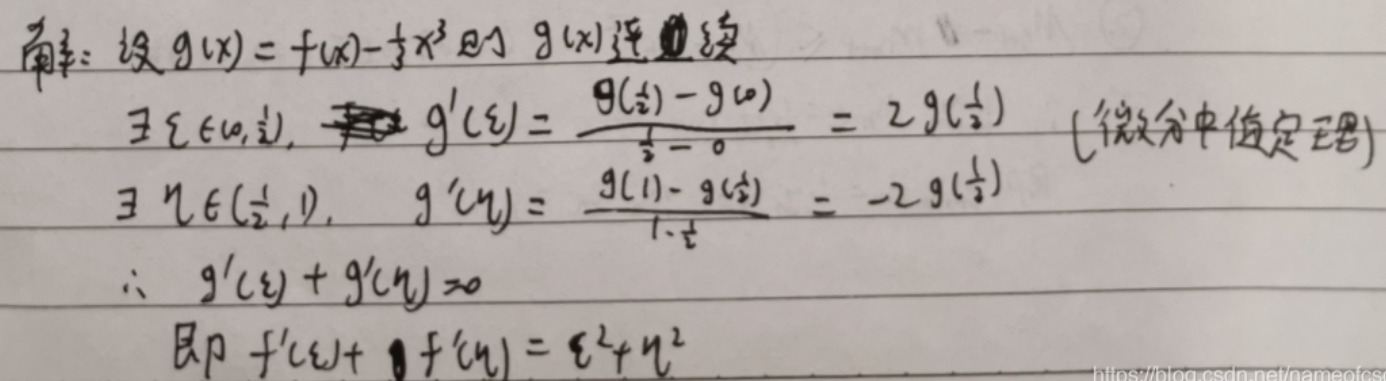 解：设 g(x) = f(x) - 1/3 x³ 则 g(x) 连续
∃ ξ ∈ (0, 1/2), g'(ξ) = (g(1/2) - g(0)) / (1/2 - 0) = 2g(1/2) (微分中值定理)
∃ η ∈ (1/2, 1), g'(η) = (g(1) - g(1/2)) / (1 - 1/2) = -2g(1/2)
∴ g'(ξ) + g'(η) = 0
即 f'(ξ) + f'(η) = ξ² + η²
https://blog.csdn.net/nameofcs